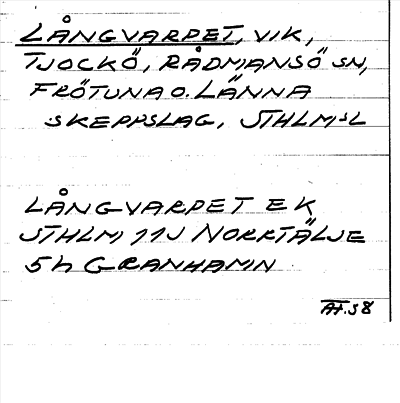 LÅNGVARPET, VIK,
TJOCKÖ, RÅDMANSÖ SN,
FRÖTUNA O. LÄNNA
SKEPPSLAG, STHLMSL
LÅNGVARPET EK
STHLM 11J NORRTÄLJE
5h GRANHAMN
AF.58